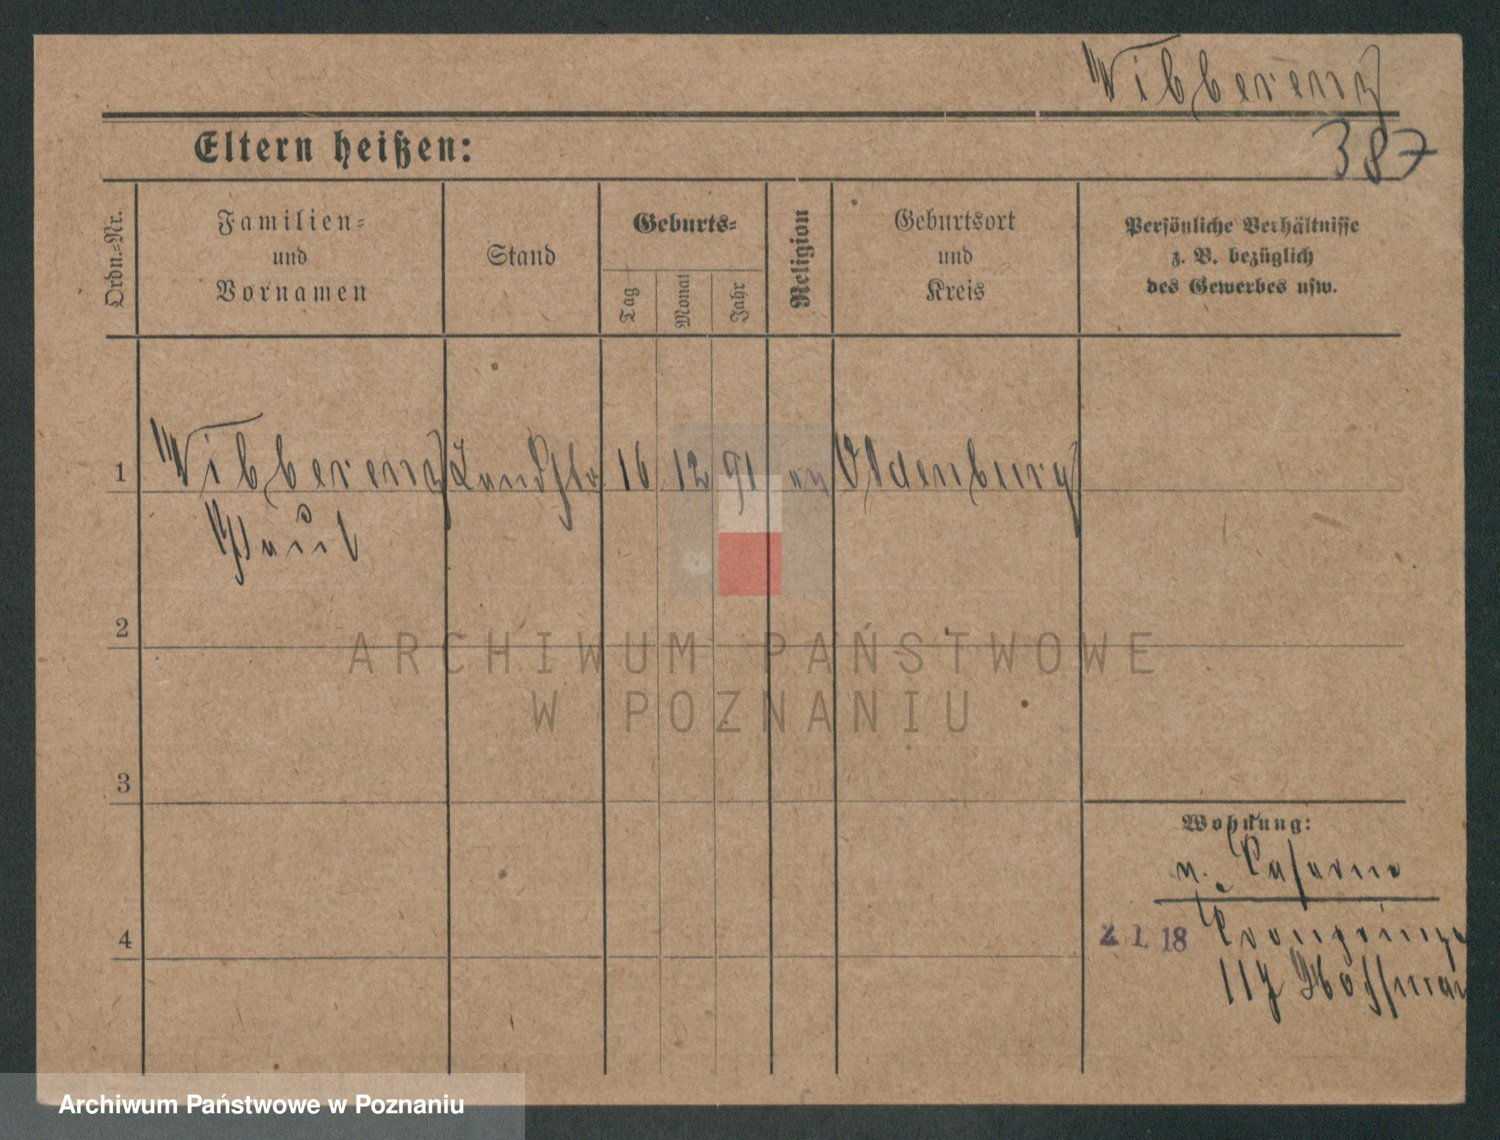 Wibberenz
387
Eltern heißen:
Ordn.-Nr.
Familien-
und
Vornamen
Stand
Geburts-
Tag
Monat
Jahr
Religion
Geburtsort
und
Kreis
Persönliche Verhältnisse
z. B. bezüglich
des Gewerbes usw.
1 Wibberenz 16 12 91 ev Oldenburg
Paul
2
3
4
ARCHIWUM PAŃSTWOWE
W POZNANIU
Wohnung:
n. Caserne
2. 1. 18 Kronprinze
117 Hoffman
Archiwum Państwowe w Poznaniu